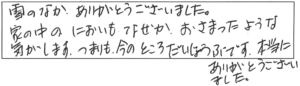 雪のなか、ありがとうございました。
家の中の においも なぜか、おさまったような
気がします。つまりも、今の ところだいじょうぶです。本当に
ありがとうござい
ました。